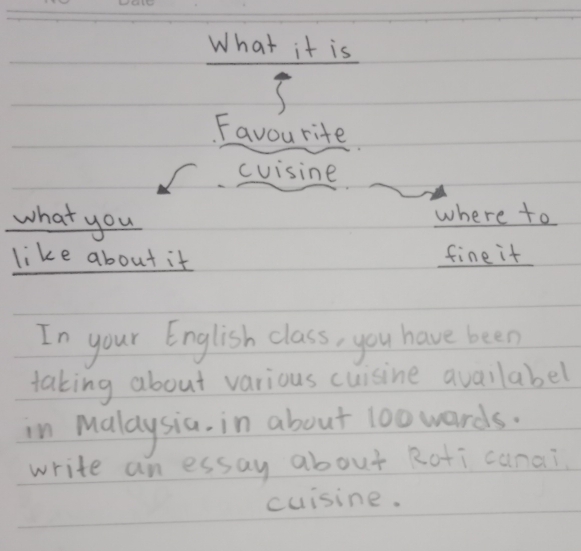 Date
What it is
Favourite
cuisine
what you
like about it
where to
fine it
In your English class, you have been
taking about various cuisine availabel
in Malaysia. in about 100 wards.
write an essay about Roti canai
cuisine.